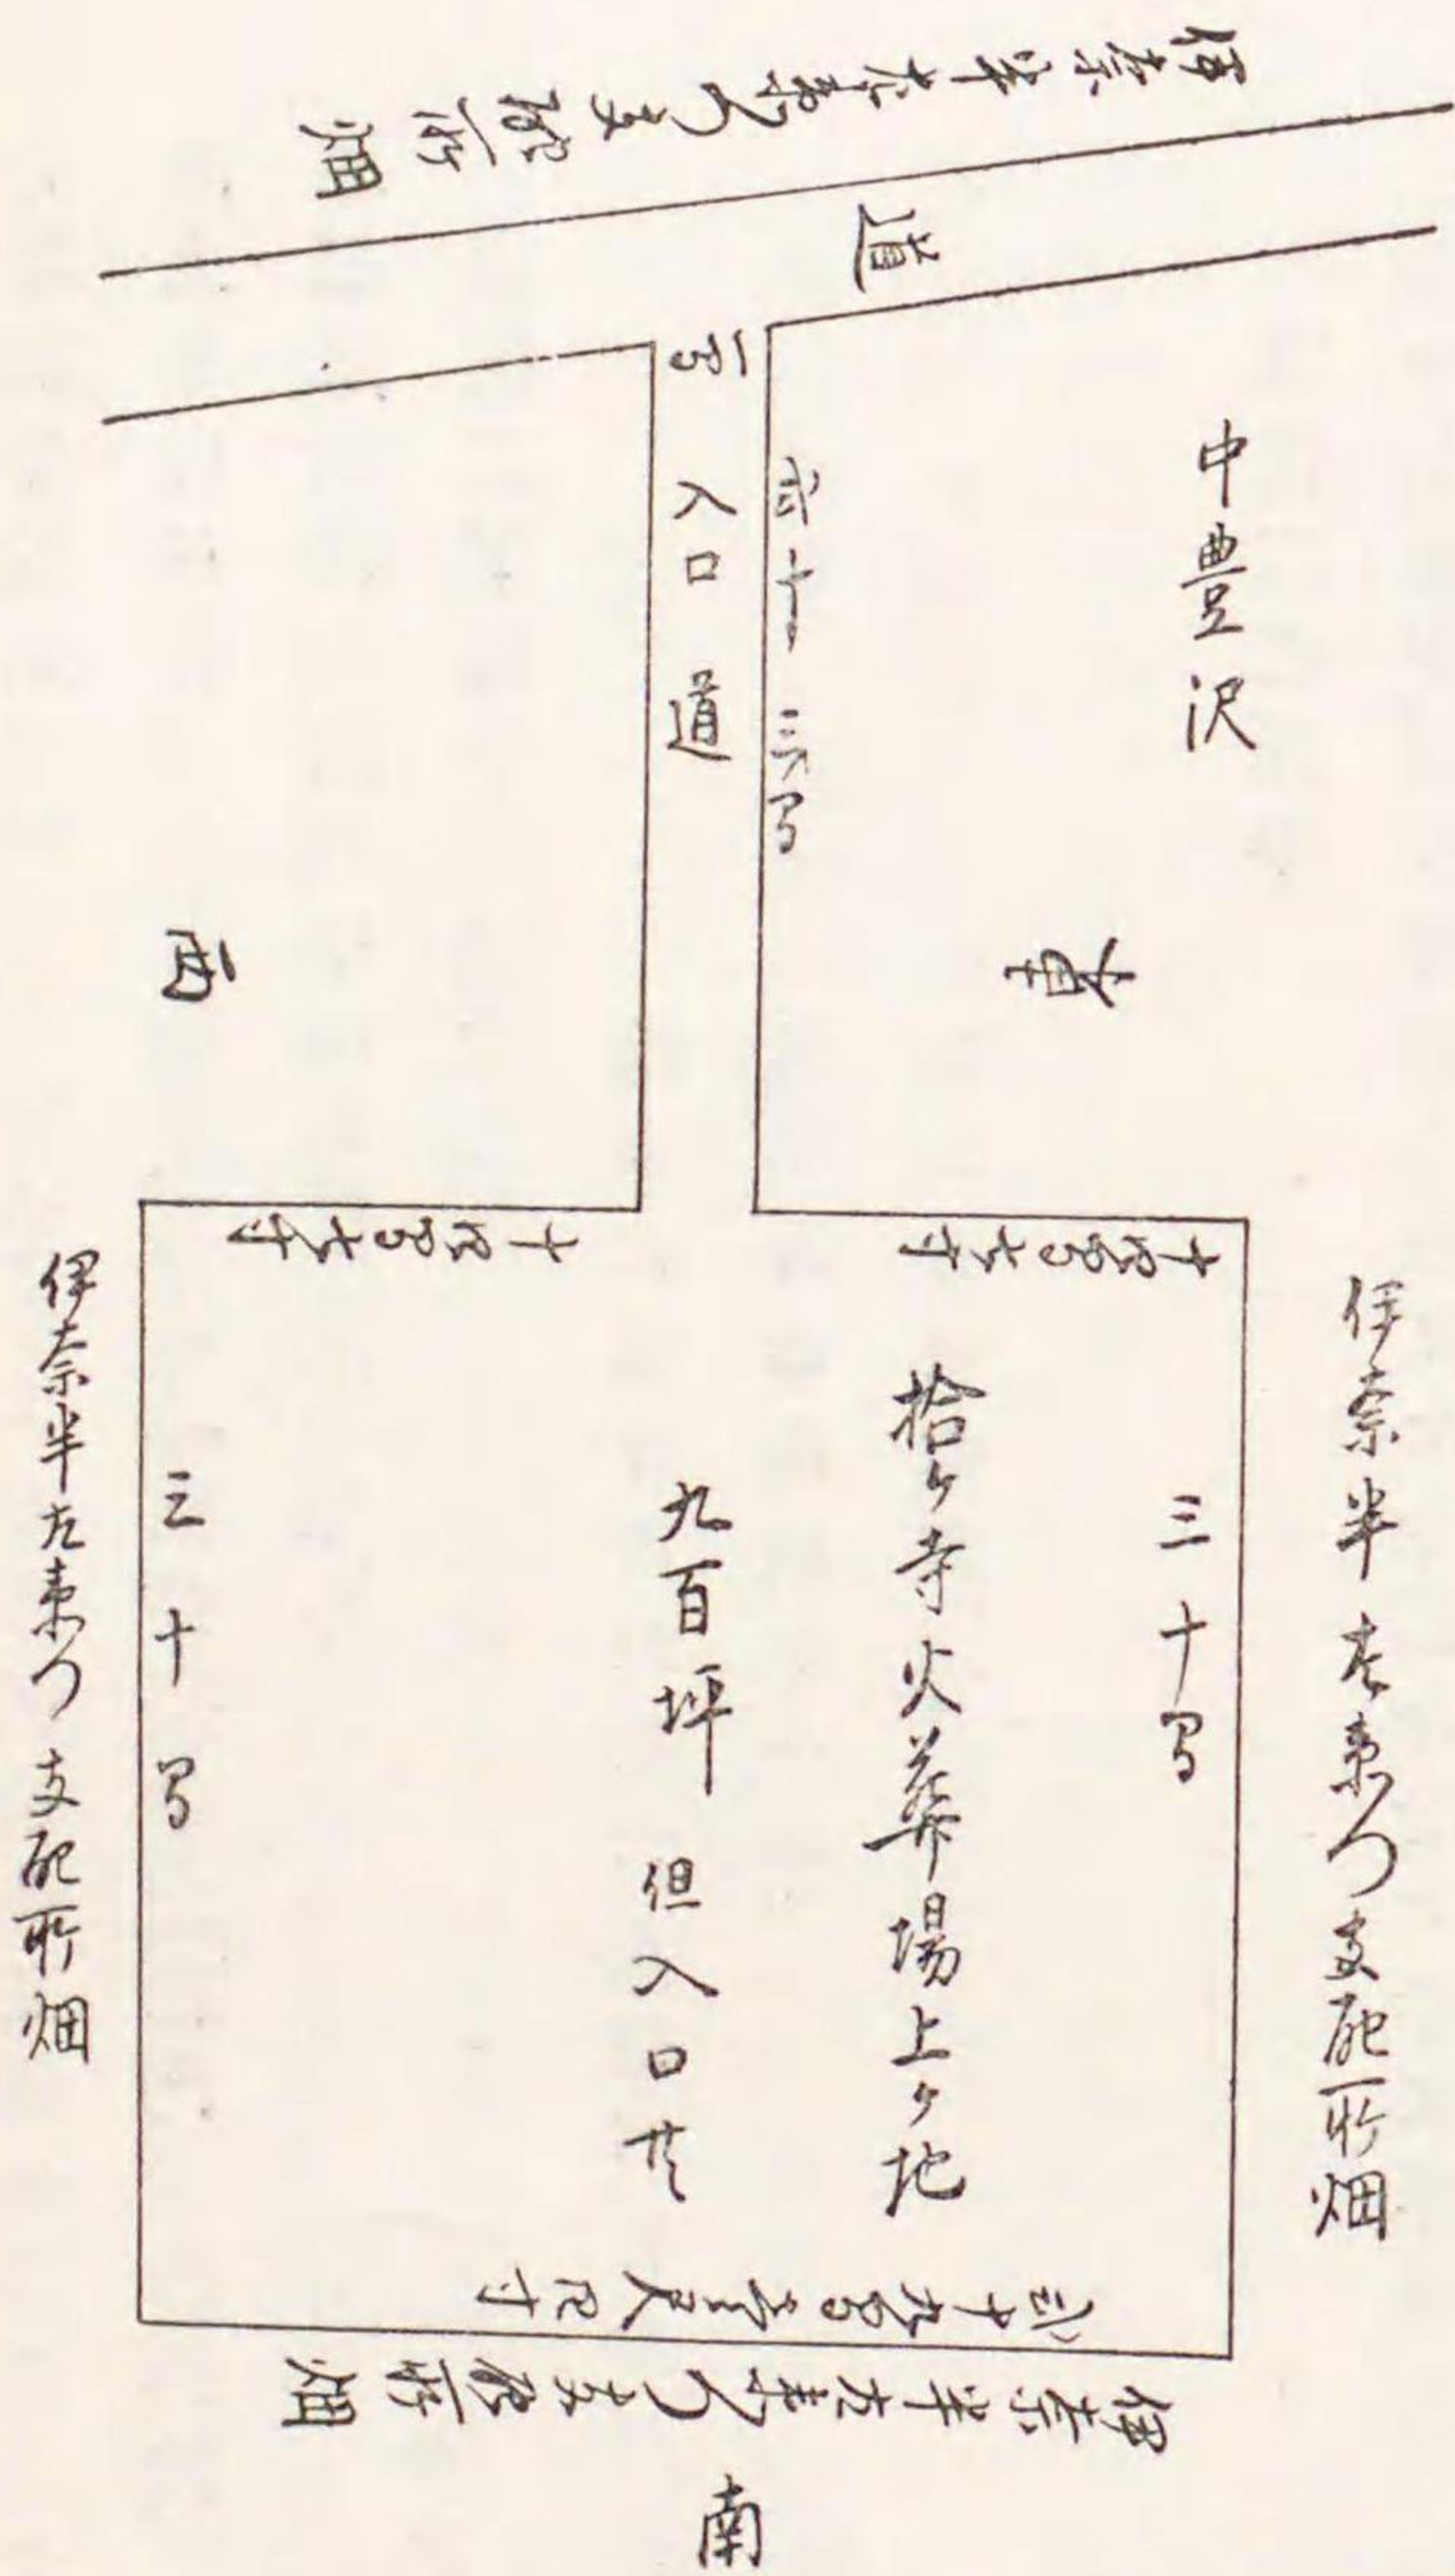 伊奈半左衛門支配所畑
道
一間
入口道
弐十三間
中豊沢
東
西
十四間七寸
十四間七寸
伊奈半左衛門支配所畑
三十間
拾ヶ寺火葬場上ヶ地
九百坪 但入口共
三十間
伊奈半左衛門支配所畑
弐十九間壱尺四寸
伊奈半左衛門支配所畑
南